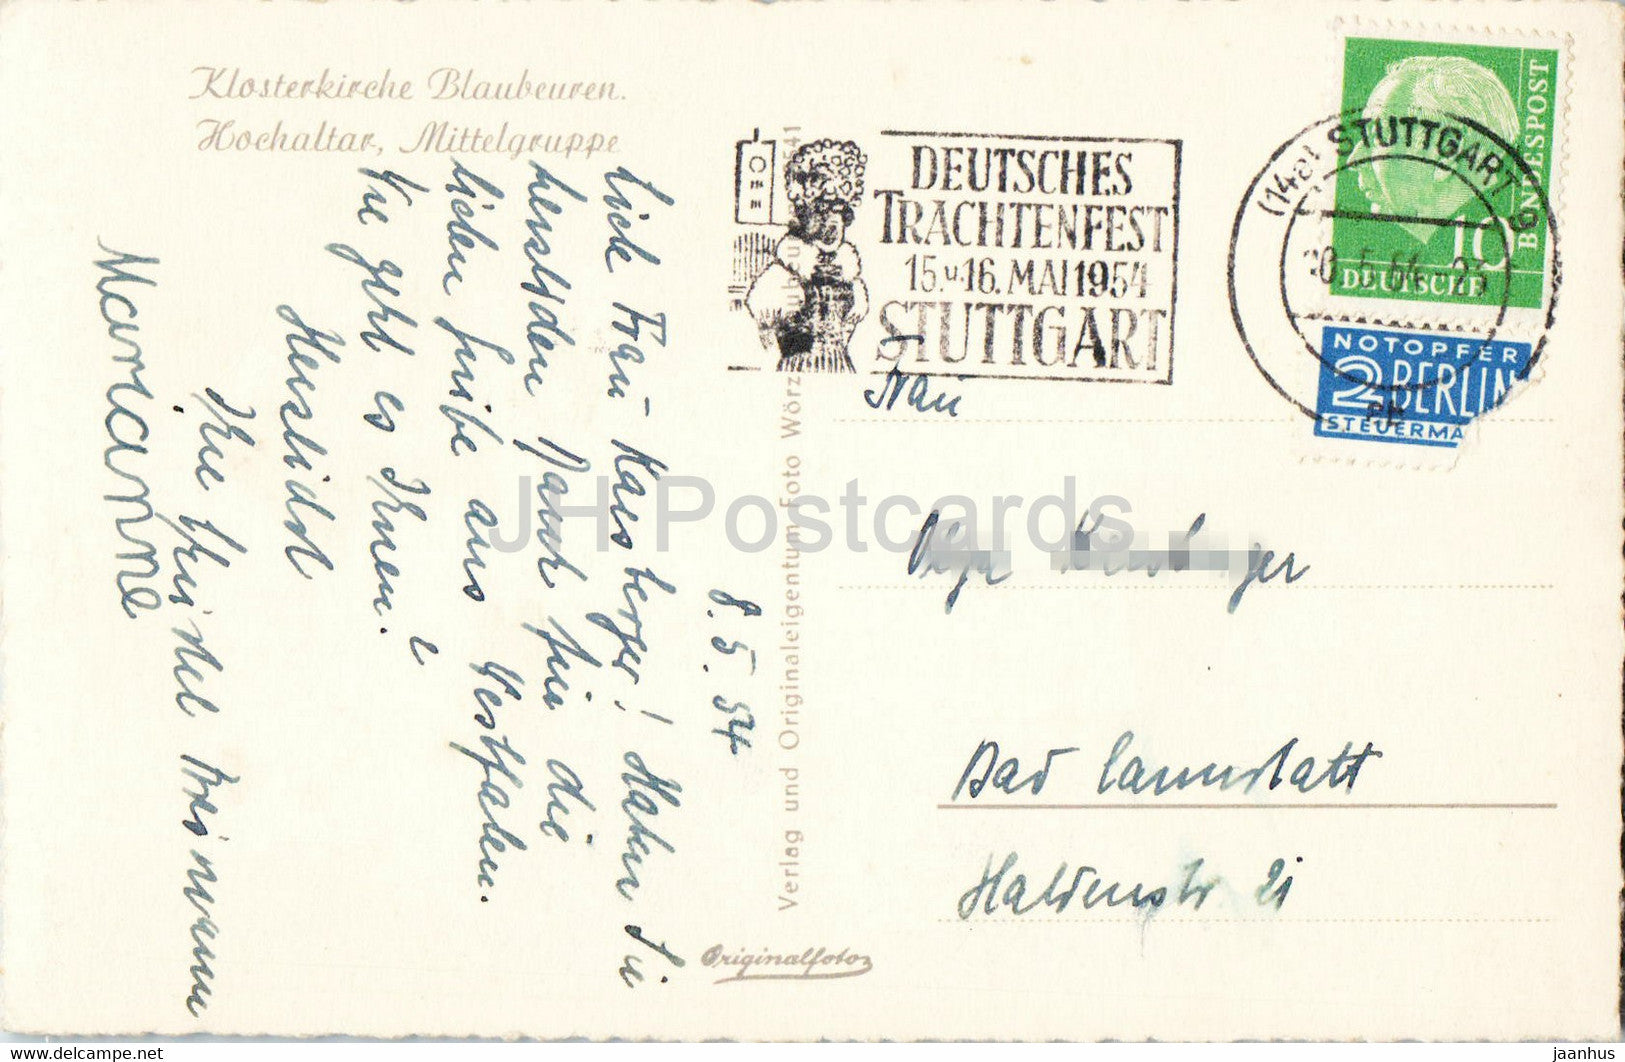 Klosterkirche Blaubeuren.
Hochaltar, Mittelgruppe
8. 5. 54
Liebe Frau Kaesberger! Haben Sie
herzlichen Dank für die
lieben aus Westfalen.
Wie geht es Ihnen?
Herzlichst
Ihre
Marianne
Verlag und Originaleigentum Foto Wörz
Originalfoto
DEUTSCHES
TRACHTENFEST
15. u. 16. MAI 1954
STUTTGART
(14a) STUTTGART 9
DEUTSCHE
BUNDESPOST
10
NOTOPFER
2 BERLIN
STEUERMA
Frau
Olga
Bad Cannstatt
Haldenstr 21
JH Postcards
delcampe.net
jaanhus